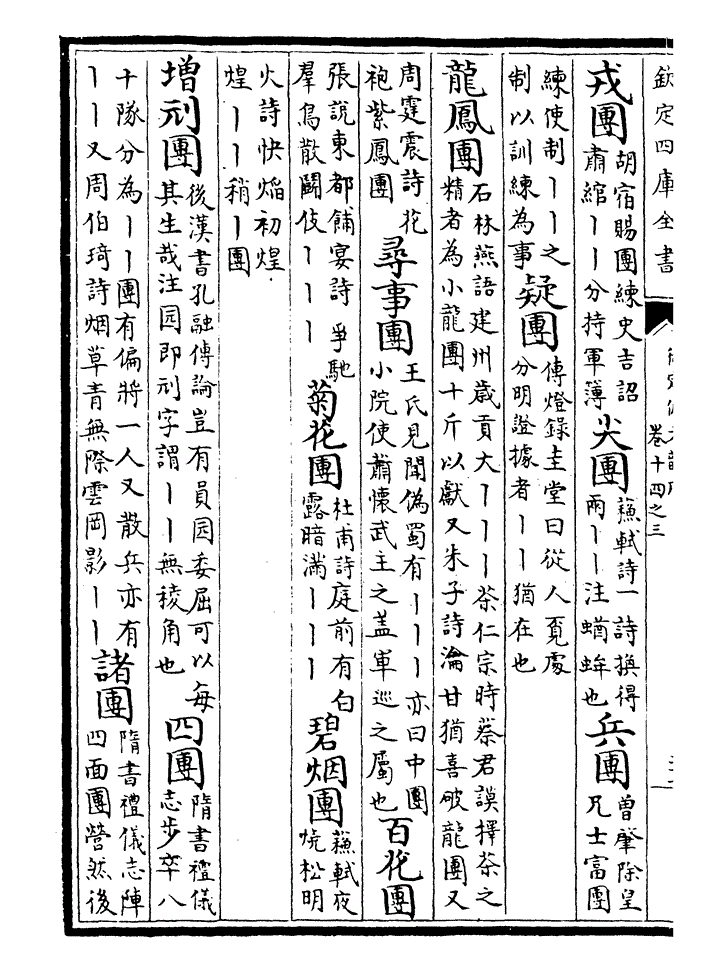 欽定四庫全書
卷十四之三
戎團
胡宿賜團練史吉詔
肅綰丨丨分持軍簿
尖團
蘇軾詩一詩換得
兩丨丨注蝤蛑也
兵團
曾肇除皇
兄士富團
練使制丨丨之
制以訓練為事
疑團
傳燈錄圭堂曰從人覓處
分明證據者丨丨猶在也
龍鳳團
石林燕語建州歲貢大丨丨丨茶仁宗時蔡君謨擇茶之
精者為小龍團十斤以獻又朱子詩瀹甘猶喜破龍團又
周霆震詩花
袍紫鳳團
尋事團
王氏見聞偽蜀有丨丨丨亦曰中團
小院使蕭懷武主之蓋軍巡之屬也
百花團
張說東都酺宴詩爭馳
羣鳥散鬭伎丨丨丨
菊花團
杜甫詩庭前有白
露暗滿丨丨丨
碧烟團
蘇軾夜
燒松明
火詩快焰初煌
煌丨丨稍丨團
增刓團
後漢書孔融傳論豈有員园委屈可以每
其生哉注园即刓字謂丨丨無稜角也
四團
隋書禮儀
志步卒八
十隊分為丨丨團有偏將一人又散兵亦有
丨丨又周伯琦詩烟草青無際雲岡影丨丨
諸團
隋書禮儀志陣
四面團營然後